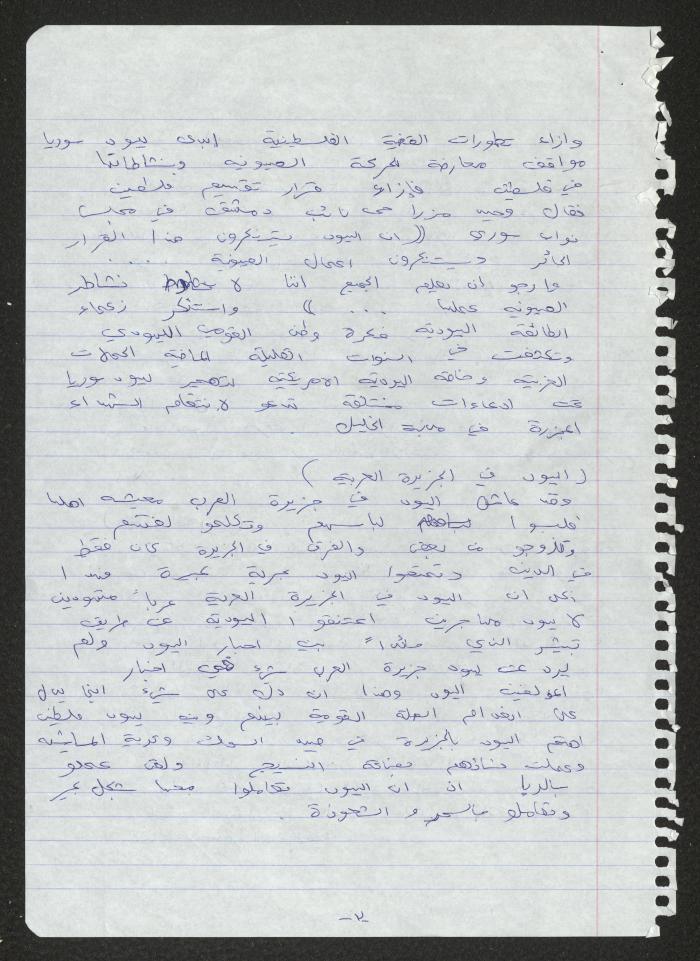 وازاء تطورات القضية الفلسطينية ابدى يهود سوريا
مواقف معارضة للحركة الصهيونية ونشاطاتها
في فلسطين فإزاء قرار تقسيم فلسطين
فقال وحيد مزراحي نائب دمشق في مجلس
نواب سوري (( ان اليهود يستنكرون هذا القرار
الجائر ويستنكرون اعمال الصهيونية ....
وارجو ان يعلم الجميع اننا لا نشاطر
الصهيونية عملها ... )) واستنكر زعماء
الطائفة اليهودية فكرة وطن القومي اليهودي
وتكثفت في السنوات القليلة الماضية الحملات
الغربية وخاصة اليهودية الامريكية لتهجير يهود سوريا
تحت ادعاءات مختلقة تدعو لانتقام الشهداء
المجزرة في مدينة الخليل .
( اليهود في الجزيرة العربية )
وقد عاش اليهود في جزيرة العرب معيشة اهلها
فلبسوا لباسهم وتكلموا لغتهم
وتزوجو من بعض والفرق في الجزيرة كان فقط
في الدين وتمتعوا اليهود بحرية كبيرة وهذا
يعني ان اليهود في الجزيرة العربية عرباً متهودين
لا يهود مهاجرين اعتنقوا اليهودية عن طريق
تبشير الذي بين احبار اليهود ولم
يرد عن يهود جزيرة العرب شيء في اخبار
المؤلفين اليهود وهذا ان دل على شيء انما يدل
على انعدام الصلة القومية بينهم وبين يهود فلسطين
اهتم اليهود بالجزيرة في صيد السمك وتربية الماشية
وعملت نسائهم بصناعة النسيج ولقد عملو
بالربا اذ ان اليهود تعاملوا معها بشكل كبير
وتعاملو بالسحر و الشعوذة .
-٢-